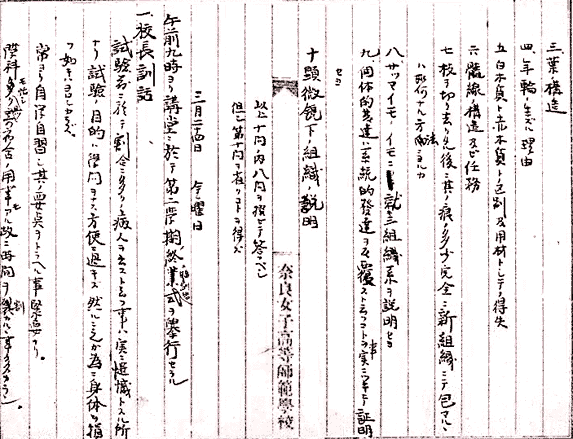 三、葉ノ構造
四、年輪ノ生ズル理由
五、白木質ト赤木質トノ区別及用材トシテノ得失
六、髄線ノ構造及ビ任務
七、枝ヲ切リ去リタル後ニ其ノ痕ノ多少完全ニ新組織ニテ包マルヽ
ハ如何ナル方法ニヨルカ
八、サツマイモ、イモニ就キ組織系ヲ説明セヨ
九、個体的発達ハ系統的発達ヲ反覆ストイフコトヲ事実ニツキテ証明
セヨ
十、顕微鏡下ノ組織ノ説明
以上十問ノ内八問ヲ撰ビテ答フベシ
但シ第十問ヲ省クコトヲ得ズ
奈良女子高等師範學校
三月二十四日 金曜日
午前九時ヨリ講堂ニ於テ第二学期終業式ヲ挙行セラル
一、校長訓話
試験前ニ於テ割合ニ多クノ病人ヲ出ストイフ事ハ実ニ遺憾トスル所
ナリ試験ノ目的ハ学問ヲナス方便ニ過ギズ然ルニ之ガ為ニ身体ヲ損
フ如キ
常ヨリ自深自習シ其ノ要点ヲトラヘル事緊要ナリ。
学科多ク